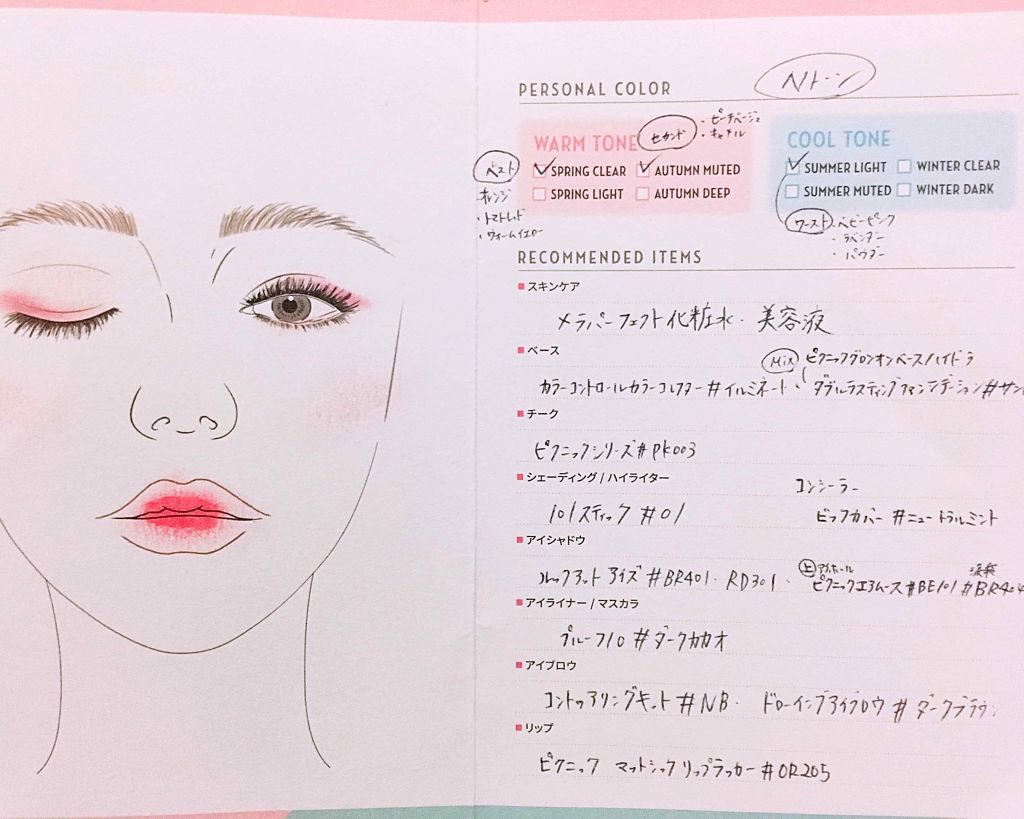 Nトーン
PERSONAL COLOR
・ピーチベージュ
・キャメル
WARM TONE セカンド
COOL TONE
ベスト
SPRING CLEAR AUTUMN MUTED
SUMMER LIGHT WINTER CLEAR
SPRING LIGHT AUTUMN DEEP
SUMMER MUTED WINTER DARK
・オレンジ
・トマトレッド
・ウォームイエロー
ワースト ・ベビーピンク
・ラベンダー
・パウダー
RECOMMENDED ITEMS
スキンケア
メラパーフェクト化粧水・美容液
ベース
Mix ピクニックグロンオンベース/ハイドラ
カラーコントロールカラーコレクター#イルミネート、ダブルラスティングファンデーション#サン
チーク
ピクニックシリーズ#PK003
シェーディング / ハイライター
コンシーラー
101スティック #01
ビッグカバー #ニュートラルミント
アイシャドウ
上 アイホール
涙袋
ルックアットアイズ #BR401・RD301・ピクニックエアムース#BE101 #BR404
アイライナー / マスカラ
プルーフ10 #ダークカカオ
アイブロウ
コントゥアリングキット #NB・ドローイングアイブロウ #ダークブラウン
リップ
ピクニック マットシックリップラッカー #OR205